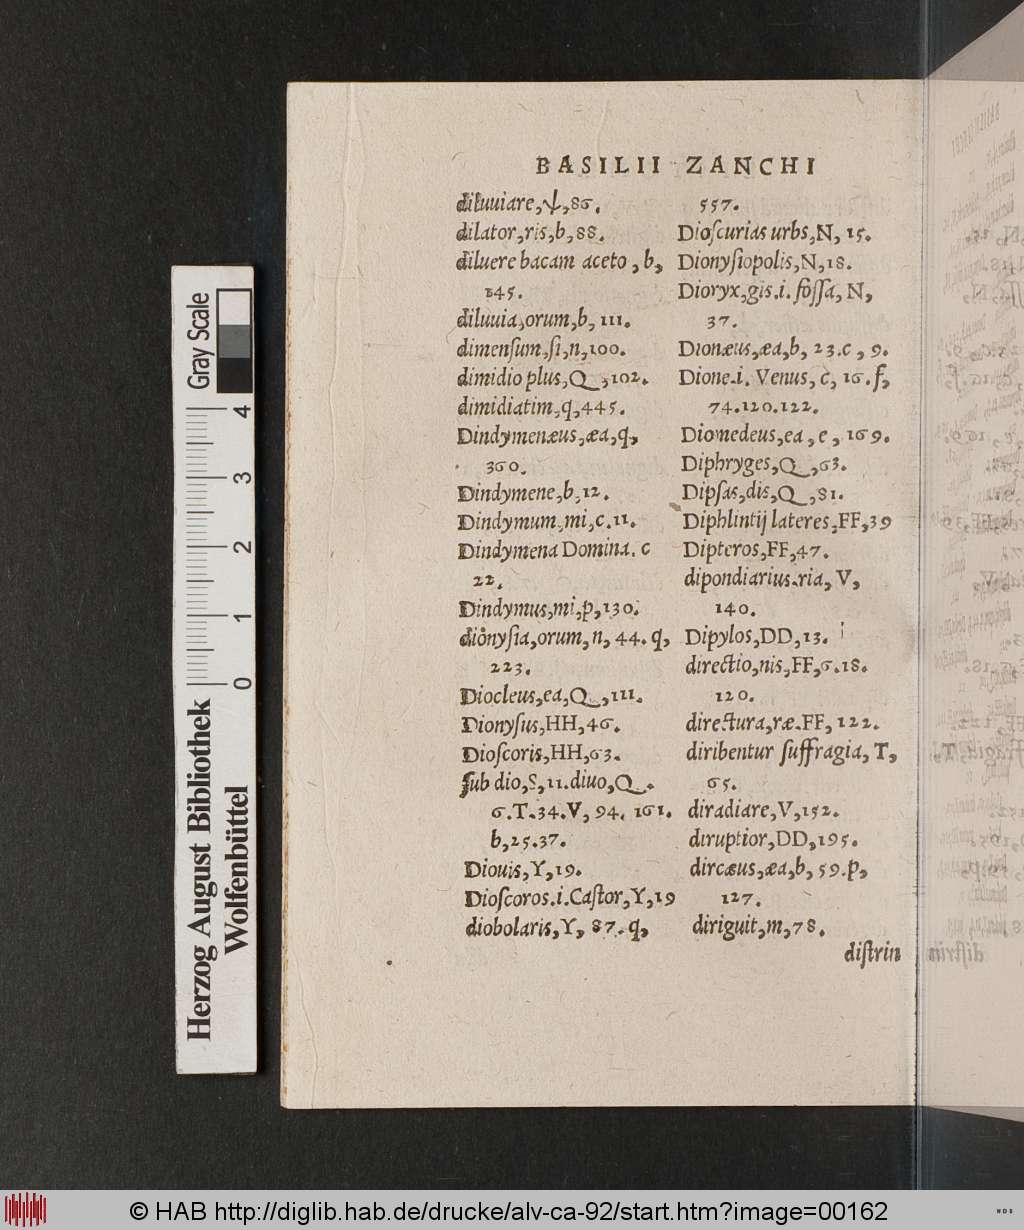 BASILII ZANCHI
diluuiare,ψ,86.
dilator,ris,b,88.
diluere bacam aceto, b,
145.
diluuia,orum,b, 111.
dimenſum,ſi,n,100.
dimidio plus,Q,102.
dimidiatim,q,445.
Dindymenæus,æa,q,
360.
Dindymene,b,12.
Dindymum,mi,c.11.
Dindymena Domina. c
22.
Dindymus,mi,p,130.
dionyſia,orum,n, 44. q,
223.
Diocleus,ea,Q,111.
Dionyſus,HH,46.
Dioſcoris,HH,63.
ſub dio,S,11.diuo,Q.
6.T.34.V, 94. 161.
b,25.37.
Diouis,Y,19.
Dioſcoros.i.Caſtor,Y,19
diobolaris,Y, 87. q,
557.
Dioſcurias urbs,N, 15.
Dionyſiopolis,N,18.
Dioryx,gis.i. foſſa, N,
37.
Dionæus,æa,b, 23.c, 9.
Dione.i. Venus, c, 16. f,
74.120.122.
Diomedeus,ea,e, 169.
Diphryges,Q,63.
Dipſas,dis,Q,81.
Diphlintij lateres,FF,39
Dipteros,FF,47.
dipondiarius.ria, V,
140.
Dipylos,DD,13.
directio,nis,FF,6.18.
120.
directura,ræ.FF, 122.
diribentur ſuffragia, T,
65.
diradiare,V,152.
diruptior,DD,195.
dircæus,æa,b, 59.p,
127.
diriguit,m,78.
diſtrin
Gray Scale
4
3
2
1
0
Herzog August Bibliothek
Wolfenbüttel
© HAB http://diglib.hab.de/drucke/alv-ca-92/start.htm?image=00162